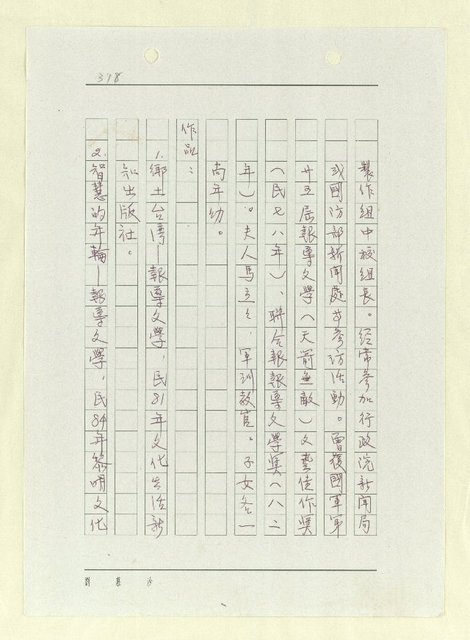 398
製作組中校組長。經常參加行政院新聞局
或國防部新聞處等參訪活動。曾獲國軍軍
廿五屆報導文學(天箭無敵)文藝佳作獎
(民七八年)、聯合報報導文學獎(八二
年)。夫人馬立之,軍訓教官。子女各一
尚年幼。
作品:
1.鄉土台灣—報導文學,民81年文化生活新
知出版社。
2.智慧的年輪—報導文學,民84年黎明文化
劉慕沙